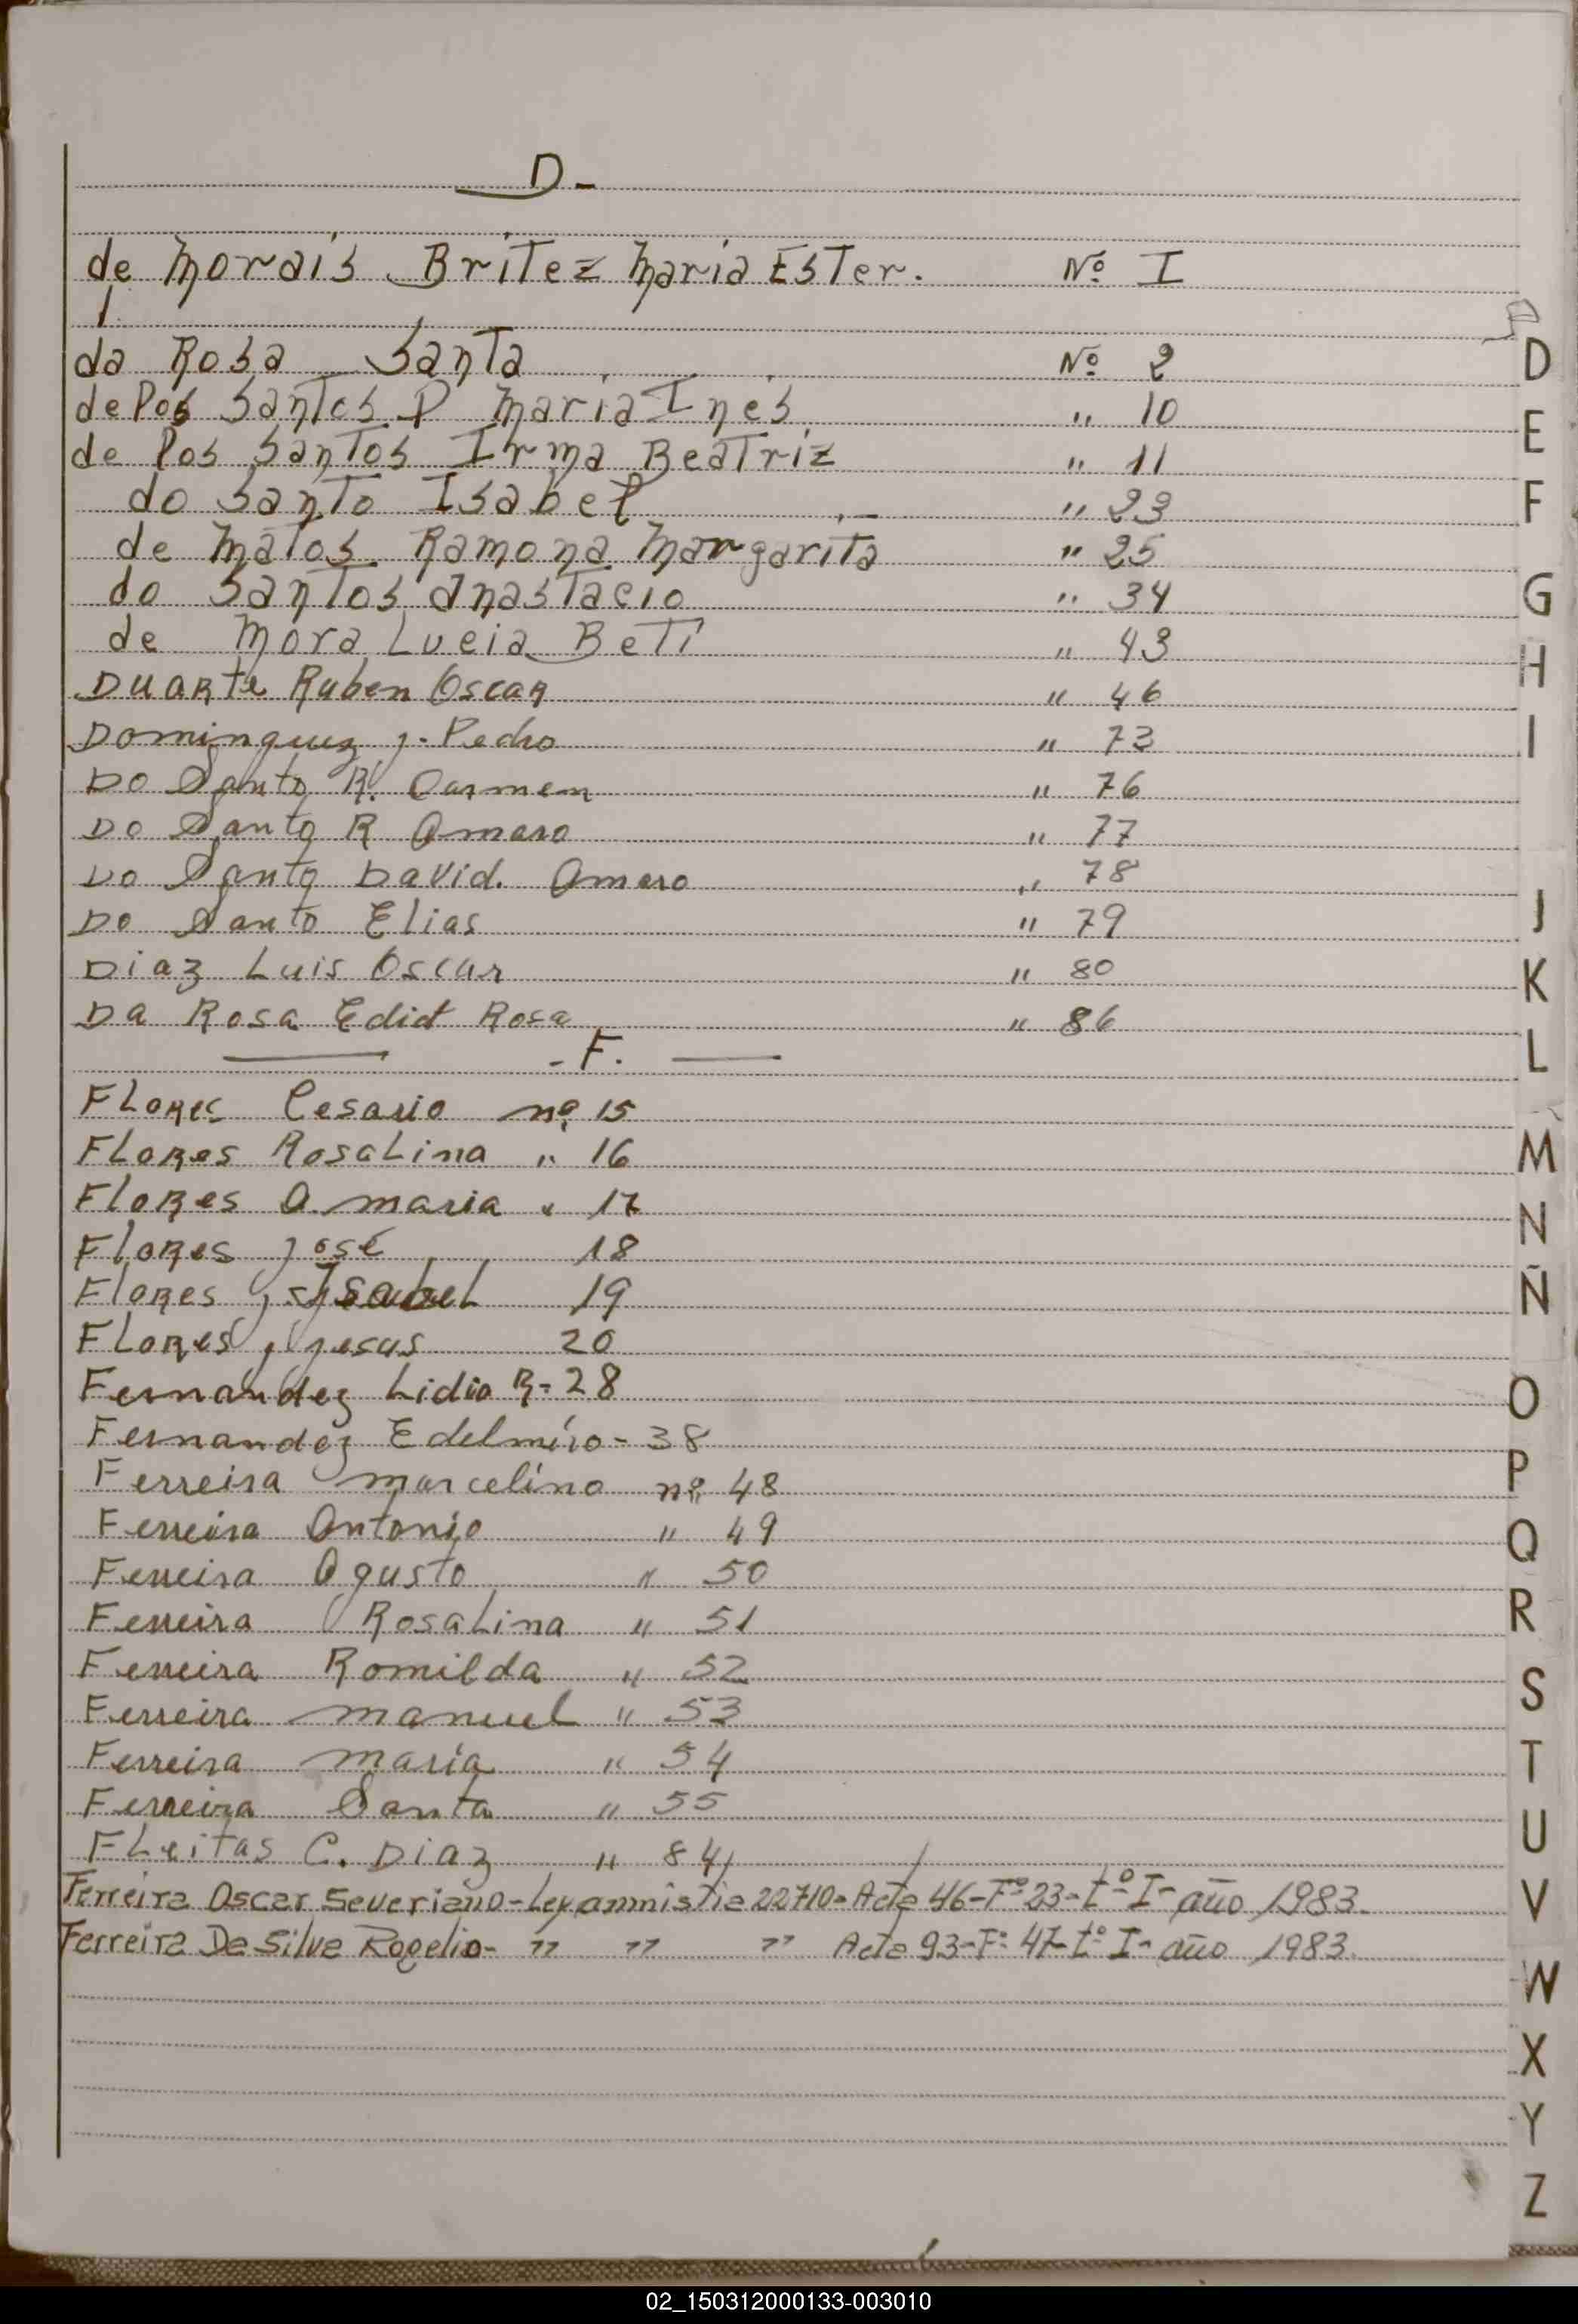 D-
de Morais Britez Maria Ester. Nº I
da Rosa Santa Nº 2
de los Santos P Maria Ines " 10
de los Santos Irma Beatriz " 11
do Santo Isabel " 23
de Matos Ramona Margarita " 25
do Santos Anastacio " 34
de Mora Lucia Beti " 43
Duarte Ruben Oscar " 46
Dominguez J. Pedro " 73
Do Santo R. Carmen " 76
Do Santo R Amaro " 77
Do Santo David. Amaro " 78
Do Santo Elias " 79
Diaz Luis Oscar " 80
Da Rosa Edit Rosa " 86
- F. -
Flores Cesario nº 15
Flores Rosalina " 16
Flores A. maria " 17
Flores José 18
Flores Isabel 19
Flores jesus 20
Fernandez Lidia R- 28
Fernandez Edelmiro - 38
Ferreira marcelino nº 48
Ferreira Antonio " 49
Ferreira Agusto " 50
Ferreira Rosalina " 51
Ferreira Romilda " 52
Ferreira manuel " 53
Ferreira maria " 54
Ferreira Santa " 55
Fleitas C. Diaz " 84
Ferreira Oscar Severiano - Ley amnistia 22710 - Acta 46 - Fº 23 - tº I - año 1983.
Ferreira Da Silva Rogelio - " " " Acta 93 - Fº 47 - tº I - año 1983.
D
E
F
G
H
I
J
K
L
M
N
Ñ
O
P
Q
R
S
T
U
V
W
X
Y
Z
02_150312000133-003010